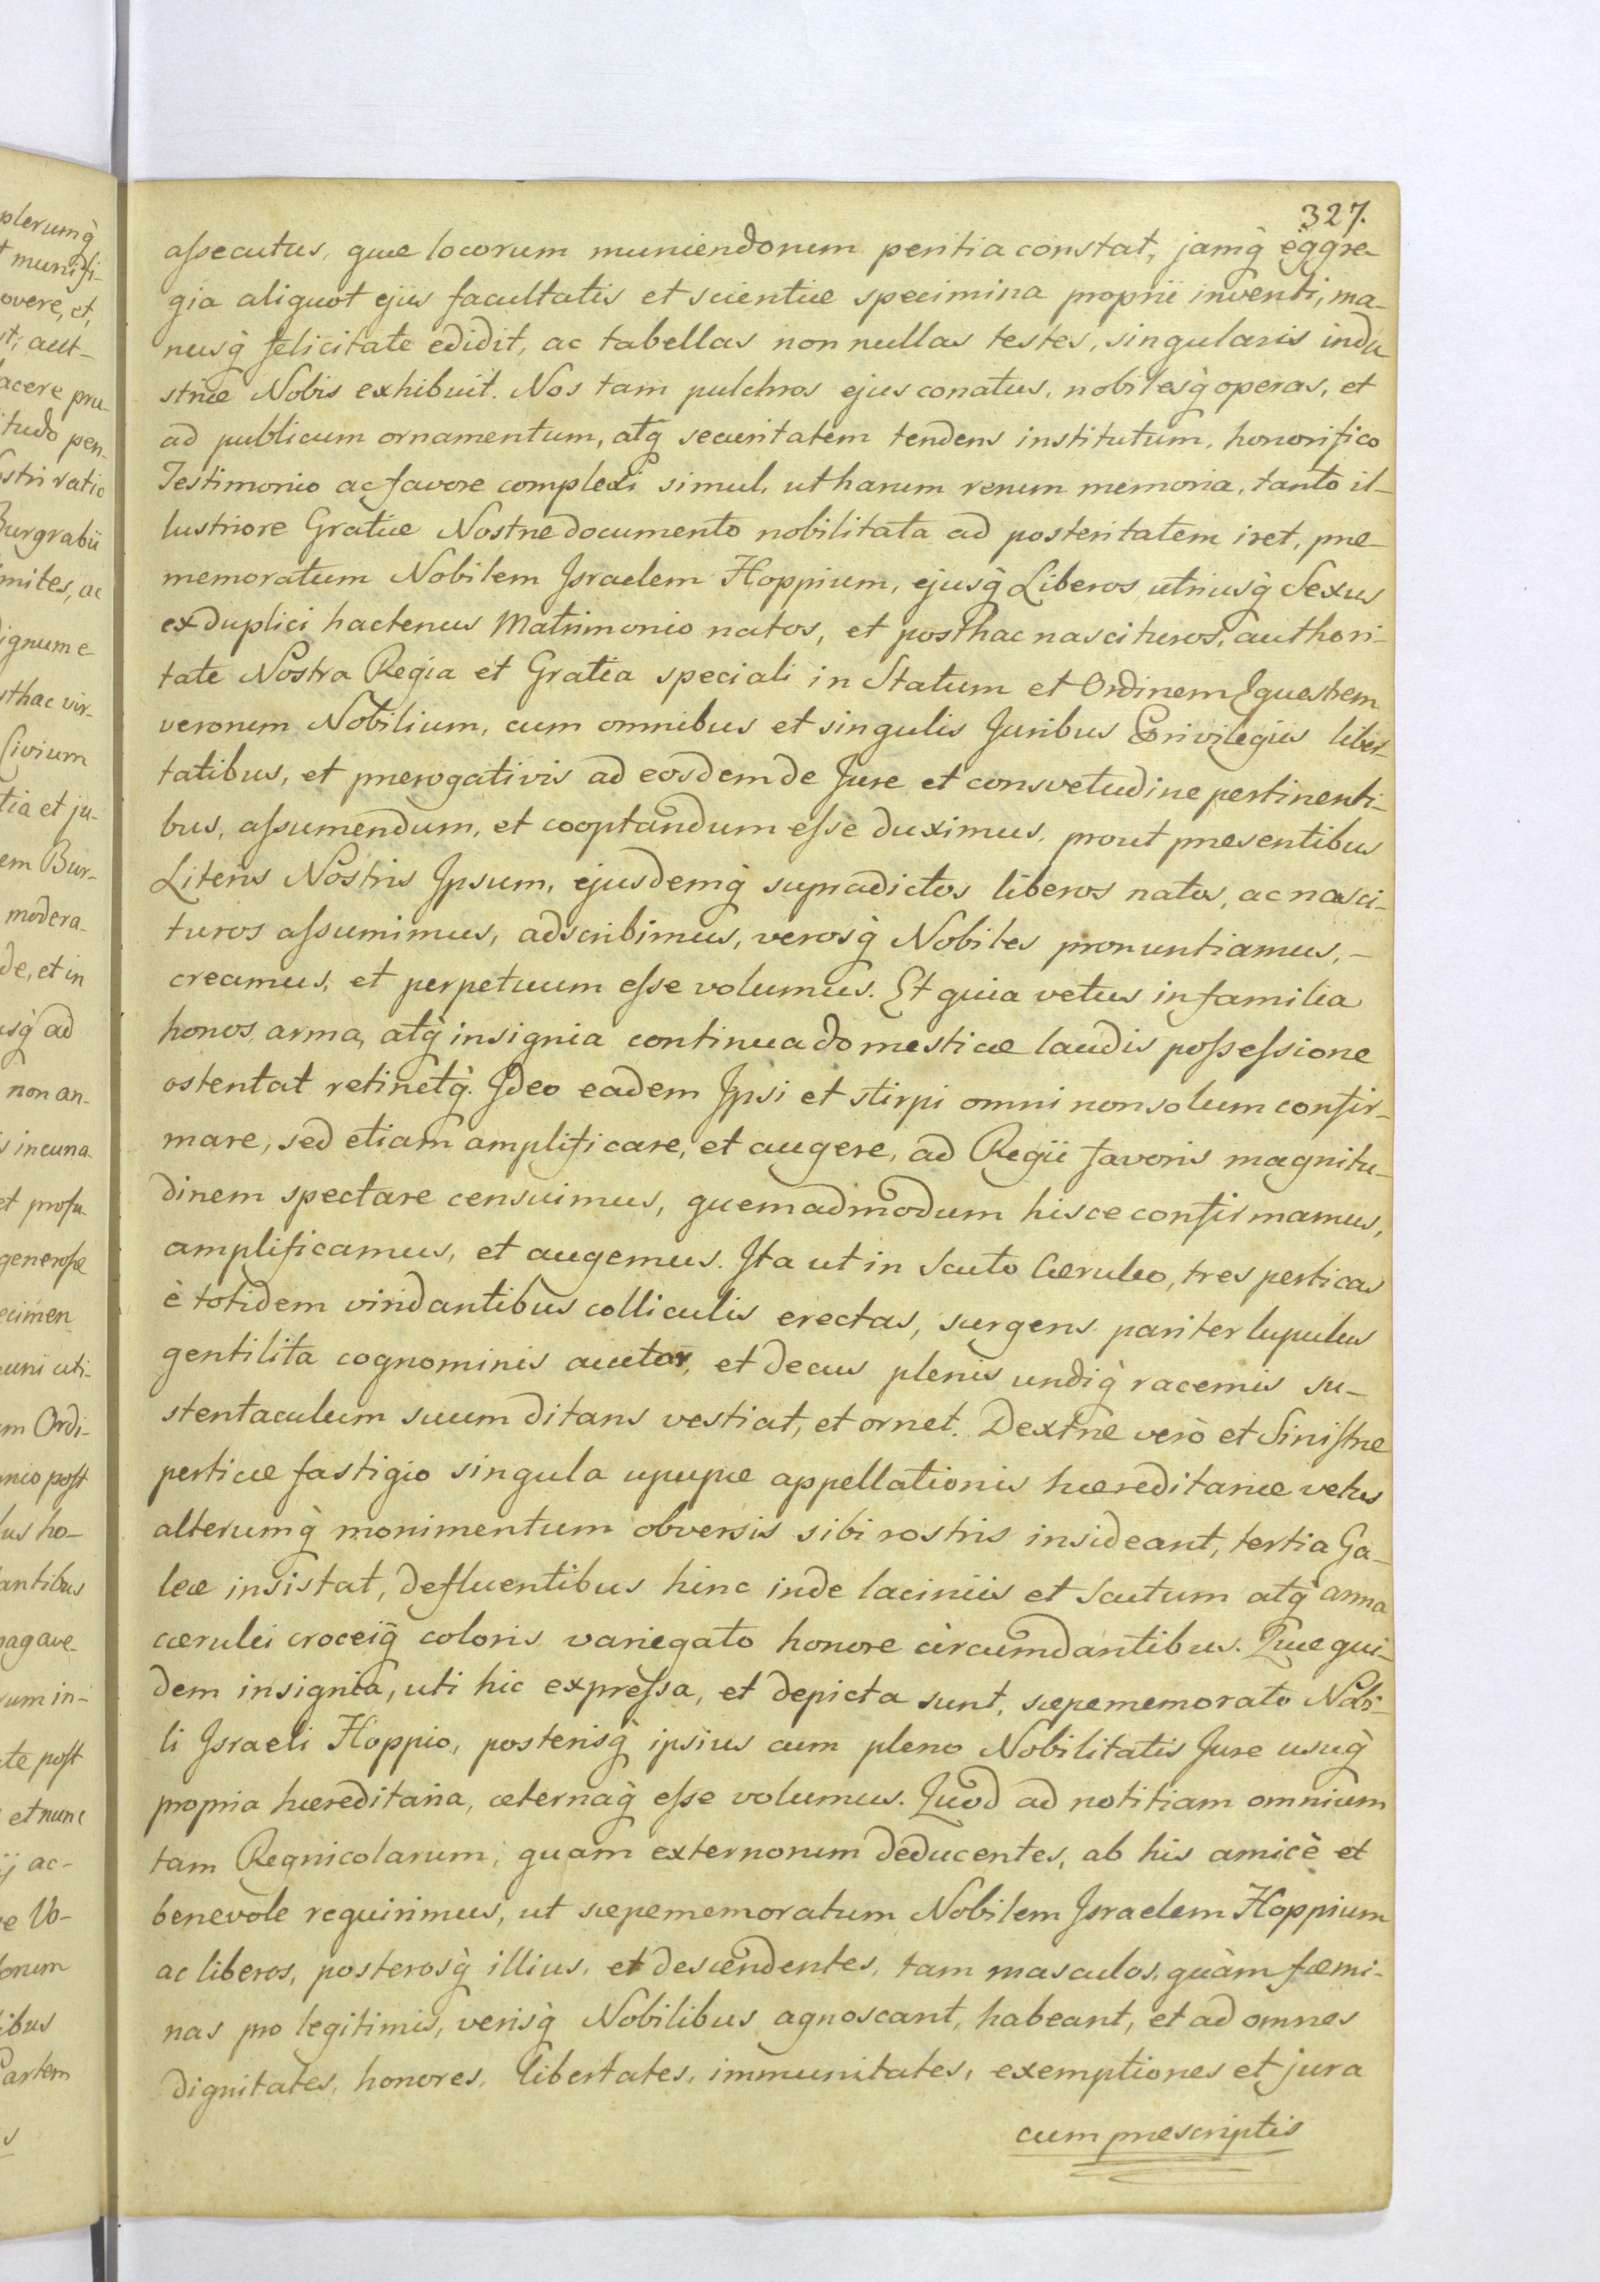 327.
assecutus, quæ locorum muniendorum peritia constat, jamq̀ eggre-
gia aliquot ejus facultatis et scientiæ specimina proprii inventi, ma-
nusq̀ felicitate edidit, ac tabellas non nullas testes, singularis indu
striæ Nobis exhibuit. Nos tam pulchros ejus conatus, nobilesq̀ operas, et
ad publicum ornamentum, atq̀ securitatem tendens institutum, honorifico
Testimonio ac favore complexi simul, ut harum rerum memoria, tanto il-
lustriore Gratiæ Nostræ documento nobilitata ad posteritatem iret, præ-
memoratum Nobilem Israelem Hoppium, ejusq̀ Liberos utriusq̀ Sexus
ex duplici hactenus Matrimonio natos, et posthac nascituros, authori-
tate Nostra Regia et Gratia speciali in Statum et Ordinem Equestrem
verorum Nobilium, cum omnibus et singulis Juribus Privilegiis liber-
tatibus, et prærogativis ad eosdem de Jure et consvetudine pertinenti-
bus, assumendum, et cooptandum esse duximus, prout præsentibus
Literis Nostris Ipsum, ejusdemq̀ supradictos liberos natos, ac nasci-
turos assumimus, adscribimus, verosq̀ Nobiles pronuntiamus, -
creamus, et perpetuum esse volumus. Et quia vetus in familia
honos, arma, atq̀ insignia continua domesticæ laudis possessione
ostentat retinetq̀. Ideo eadem Ipsi et stirpi omni non solum confir-
mare, sed etiam amplificare, et augere, ad Regii favoris magnitu-
dinem spectare censuimus, quemadmodum hisce confirmamus,
amplificamus, et augemus. Ita ut in Scuto Cæruleo, tres perticas
è totidem viridantibus colliculis erectas, surgens pariter lupulus
gentilita cognominis auctor, et decus plenis undiq̀ racemis su-
stentaculum suum ditans vestiat, et ornet. Dextræ verò et Sinistræ
perticæ fastigio singula upupæ appellationis hæreditariæ vetus
alterumq̀ monimentum obversis sibi rostris insideant, tertia Ga-
leæ insistat, defluentibus hinc inde laciniis et Scutum atq̀ arma
cærulei croceiq̀ coloris variegato honore circumdantibus. Quæ qui-
dem insignia, uti hic expressa, et depicta sunt, sæpememorato Nobi-
li Israeli Hoppio, posterisq̀ ipsius cum pleno Nobilitatis Jure usuq̀
propria hæreditaria, æternaq̀ esse volumus. Quod ad notitiam omnium
tam Regnicolarum, quam externorum deducentes, ab his amicè et
benevole requirimus, ut sæpememoratum Nobilem Israelem Hoppium
ac liberos, posterosq̀ illius, et descendentes, tam masculos, quàm fæmi-
nas pro legitimis, verisq̀ Nobilibus agnoscant, habeant, et ad omnes
dignitates, honores, libertates, immunitates, exemptiones et jura
cum præscriptis